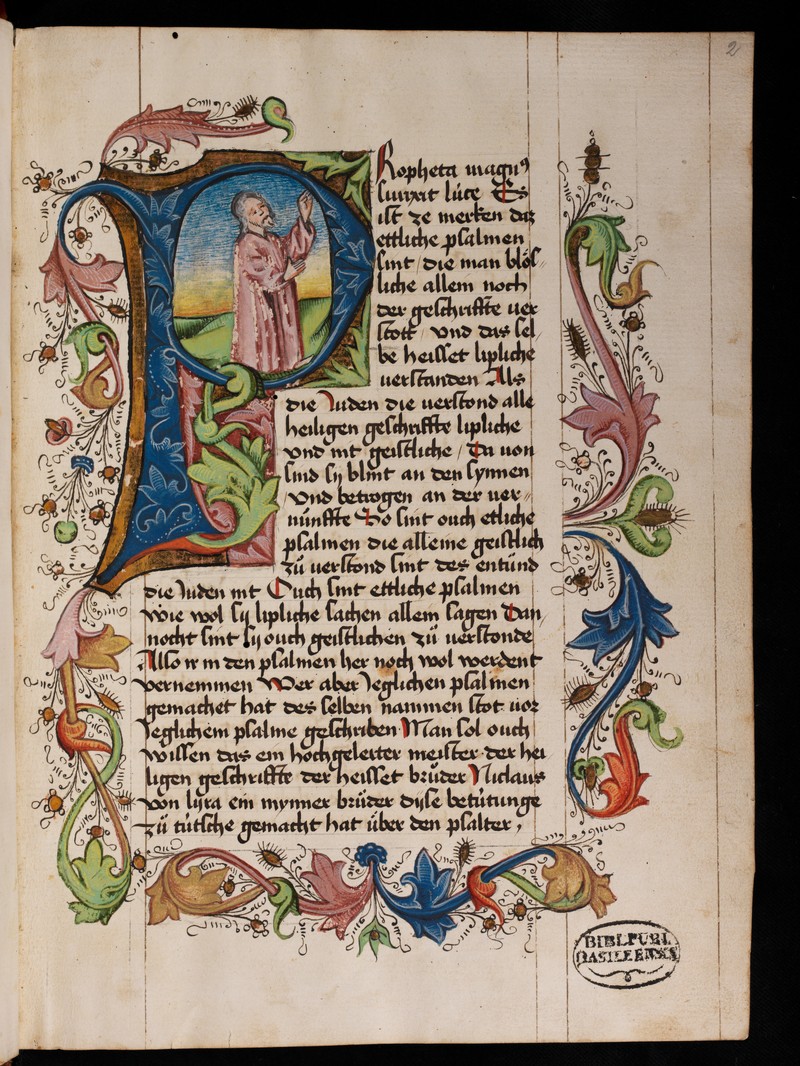 2
Propheta magnꝰ
surrexit luce Es
ist ze merken daz
ettliche psalmen
sint / die man blös⸗
liche allein noch
der geschriffte uer
stott / vnd das sel
be heisset lipliche
uerstanden Als
die Juden die uerstond alle
heiligen geschriffte lipliche
vnd nit geistliche / Da uon
sind sij blint an den synnen
/ vnd betrogen an der uer⸗
nunffte So sint ouch etliche
psalmen die alleine geistlich
zů uerstond sint des entůnd
die Juden nit Ouch sint ettliche psalmen
wie wol sij lipliche sachen allein sagen Dan
nocht sint sij ouch geistlichen zů uerstonde
Also ir in den psalmen her noch wol werdent
vernemmen Wer aber Jeglichen psalmen
gemachet hat des selben nammen stot uor
Jeglichem psalme geschriben Man sol ouch
wissen das ein hochgelerter meister der hei
ligen geschriffte der heisset brůder Niclaus
von lijra ein mynner brůder dyse betütunge
zů tütsche gemacht hat über den psalter /
BIBL. PUBL.
BASILEENSIS